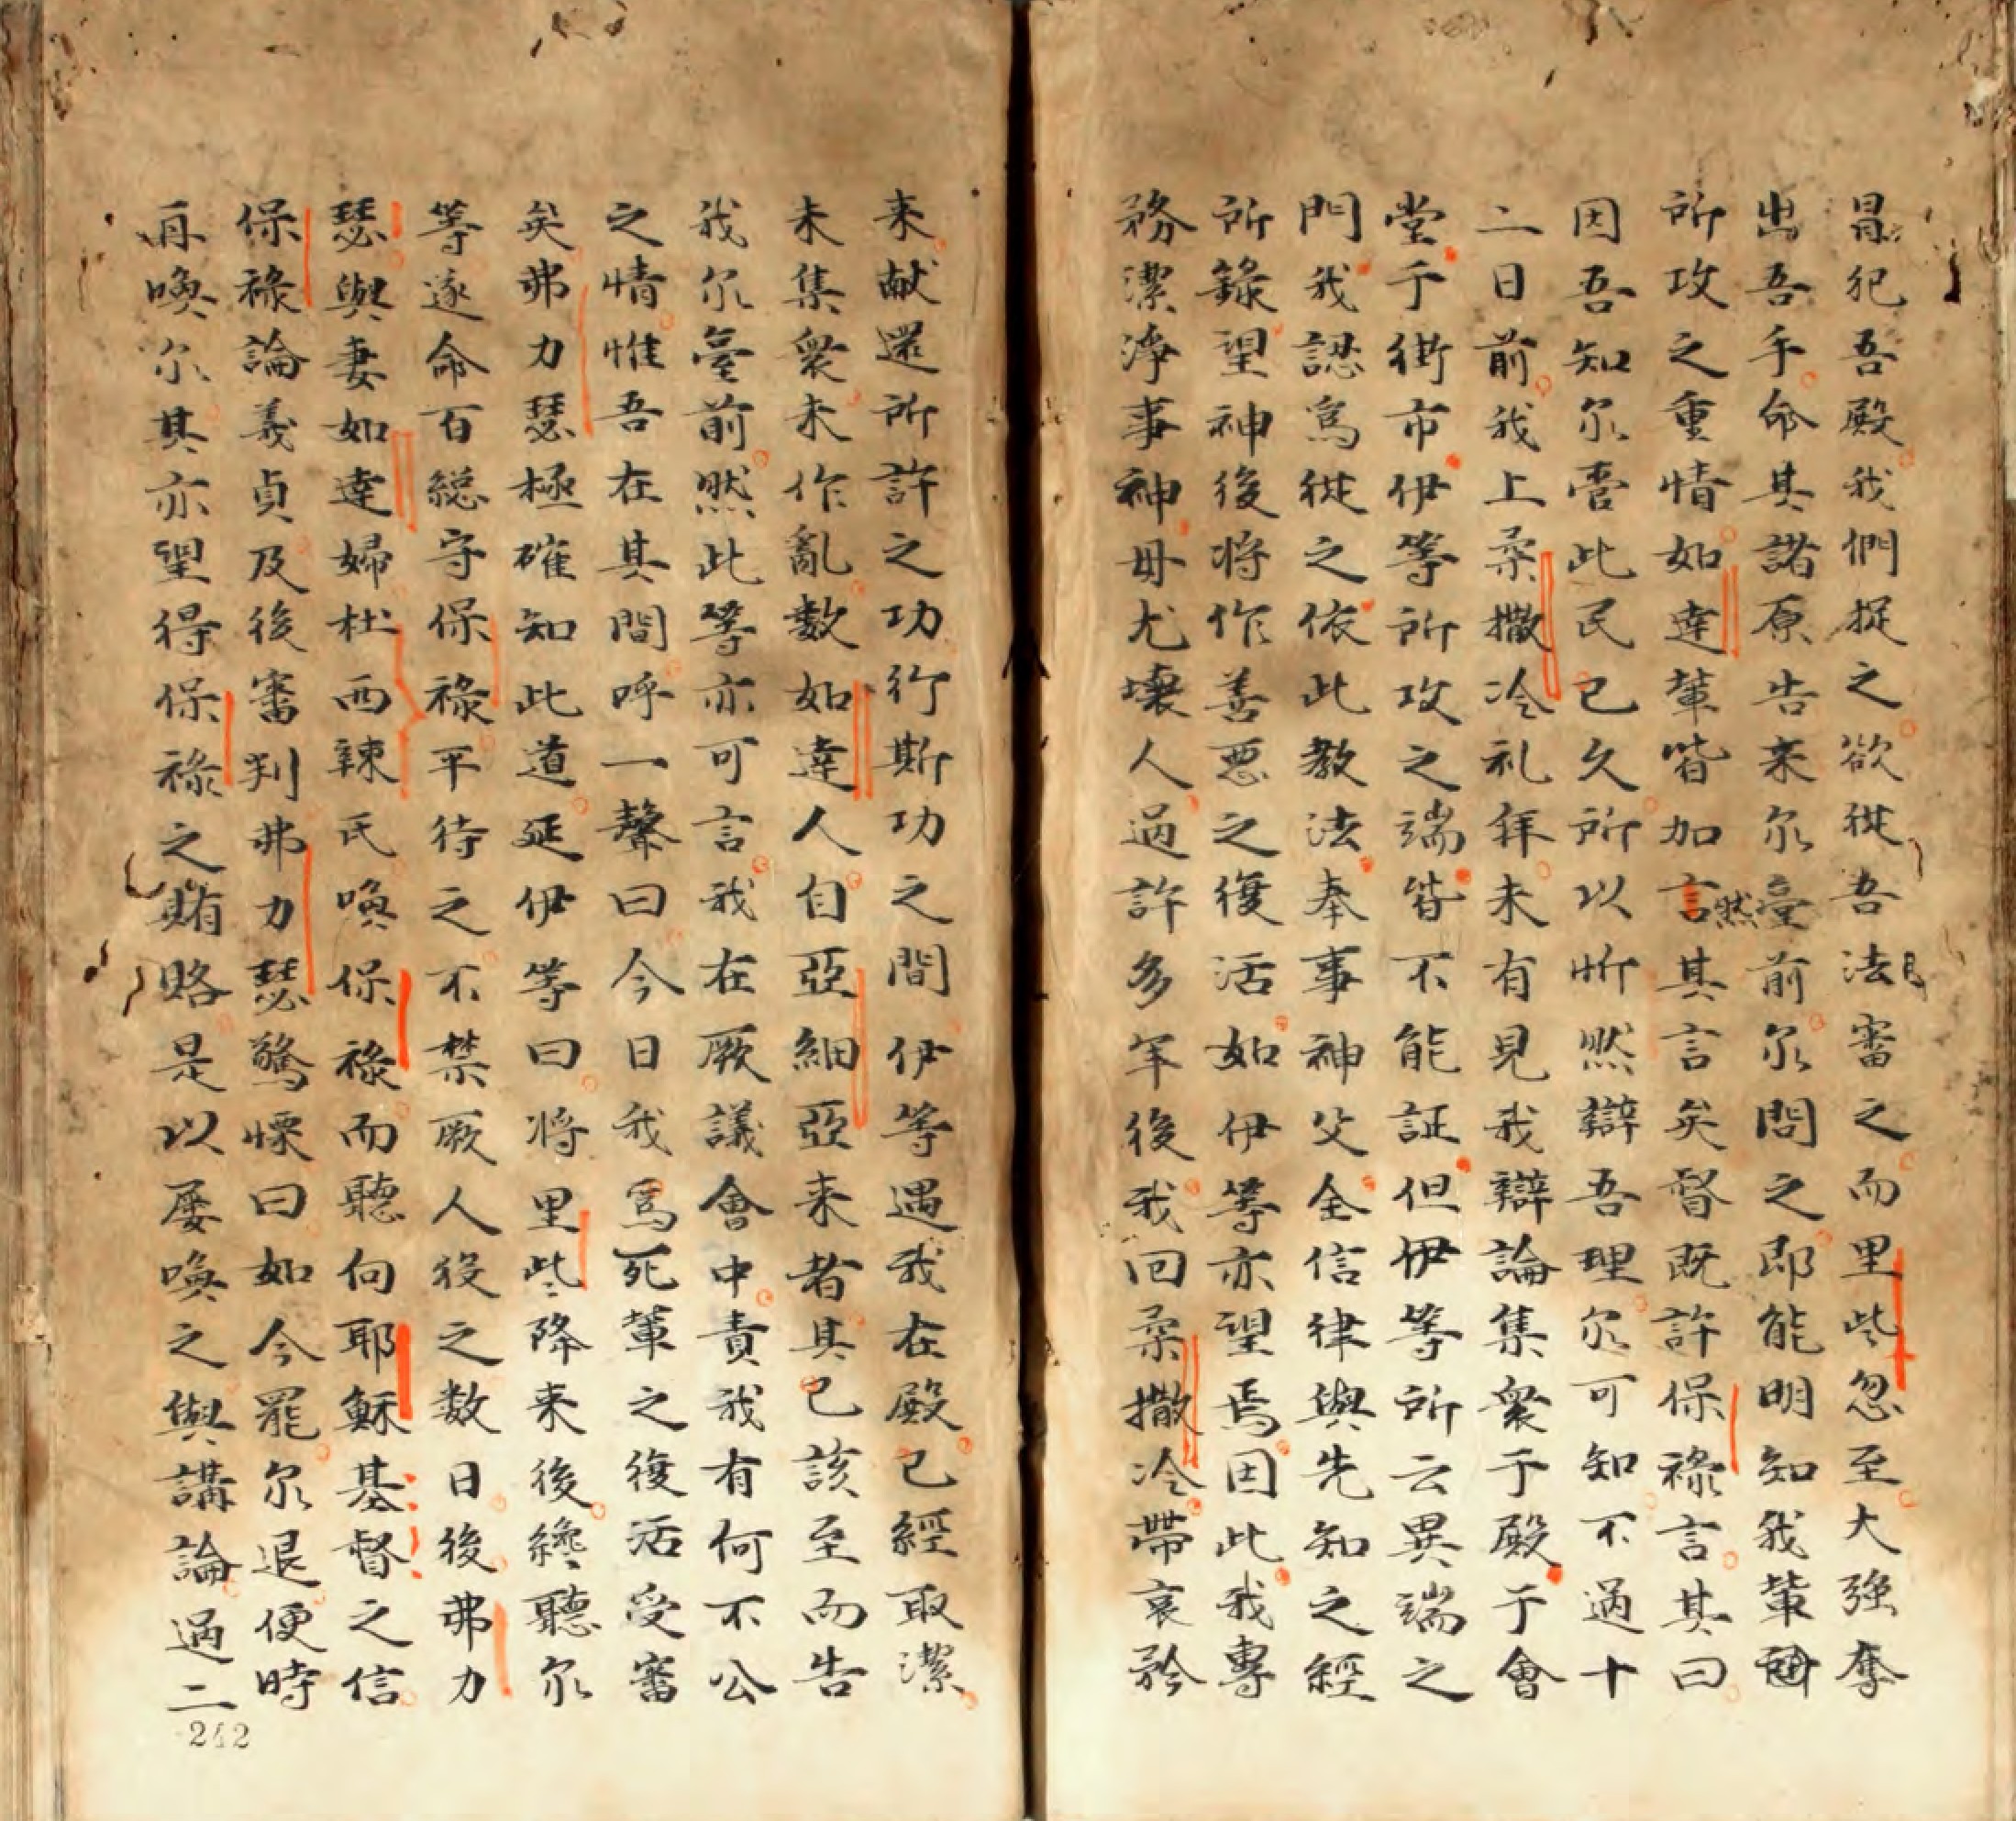 冒犯吾殿我們捉之欲從吾法審之而里些忽至大強奪
出吾手命其諸原告来尔臺前尔問之即能明知我輩
所攻之重情如達輩皆加言然其言矣督既許保祿言其曰
因吾知尔嗇此民已久所以忻然辯吾理尔可知不過十
二日前我上柔撒冷礼拜未有見我辯論集衆于殿于會
堂于街市伊等所攻之端皆不能証但伊等所云異端之
門我認為從之依此教法奉事神父全信律與先知之經
所錄望神後将作善惡之復活如伊等亦望焉因此我專
務潔淨事神毋尤壞人過許多年後我回柔撒冷帶哀矜
来献還所許之功行斯功之間伊等遇我在殿已經取潔
未集衆未作亂數如達人自亞細亞来者其已該至而告
我尔臺前然此等亦可言我在厥議會中責我有何不公
之情惟吾在其間呼一聲曰今日我為死輩之復活受審
矣弗力瑟極確知此道延伊等曰将里些降来後纔聽尔
等遂命百總守保祿平待之不禁厥人役之数日後弗力
瑟與妻如達婦杜西辣氏喚保祿而聽向耶穌基督之信
保祿論義貞及後審判弗力瑟驚慄曰如今罷尔退便時
再喚尔其亦望得保祿之賄賂是以屡喚之與講論過二
242